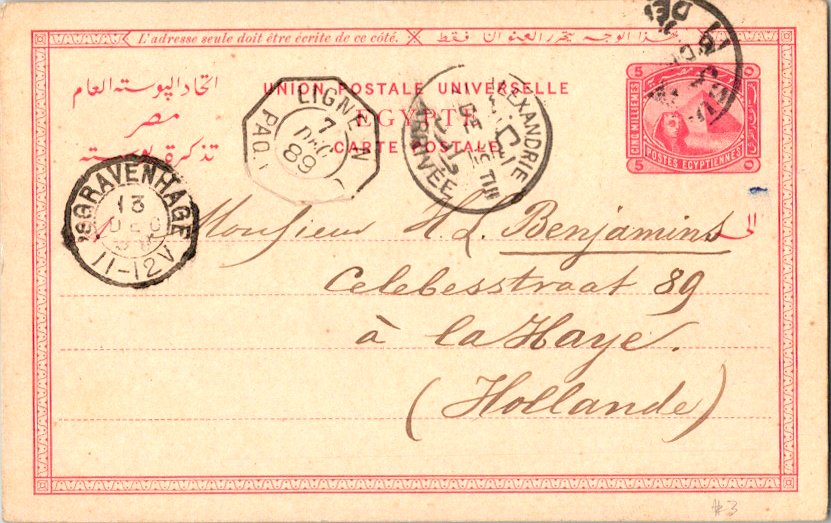 L'adresse seule doit être écrite de ce côté. هذا الوجه يتحرر العنوان فقط
اتحاد البوسته العام
مصر
تذكرة بوسته
UNION POSTALE UNIVERSELLE
EGYPTE
CARTE POSTALE
5 5
CINQ MILLIEMES
POSTES EGYPTIENNES
5
LIGNE N
PAQ.
7
DEC
89
ALEXANDRIE
ARRIVÉE
'SGRAVENHAGE
13
DEC
11-12V
Monsieur H.L. Benjamins
Celebesstraat 89
à la Haye.
(Hollande)
إلى
#3